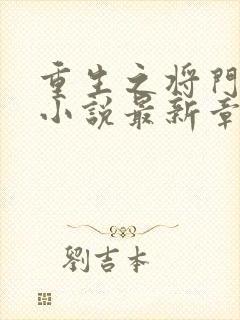 重生之将門
小説最新章
劉吉本